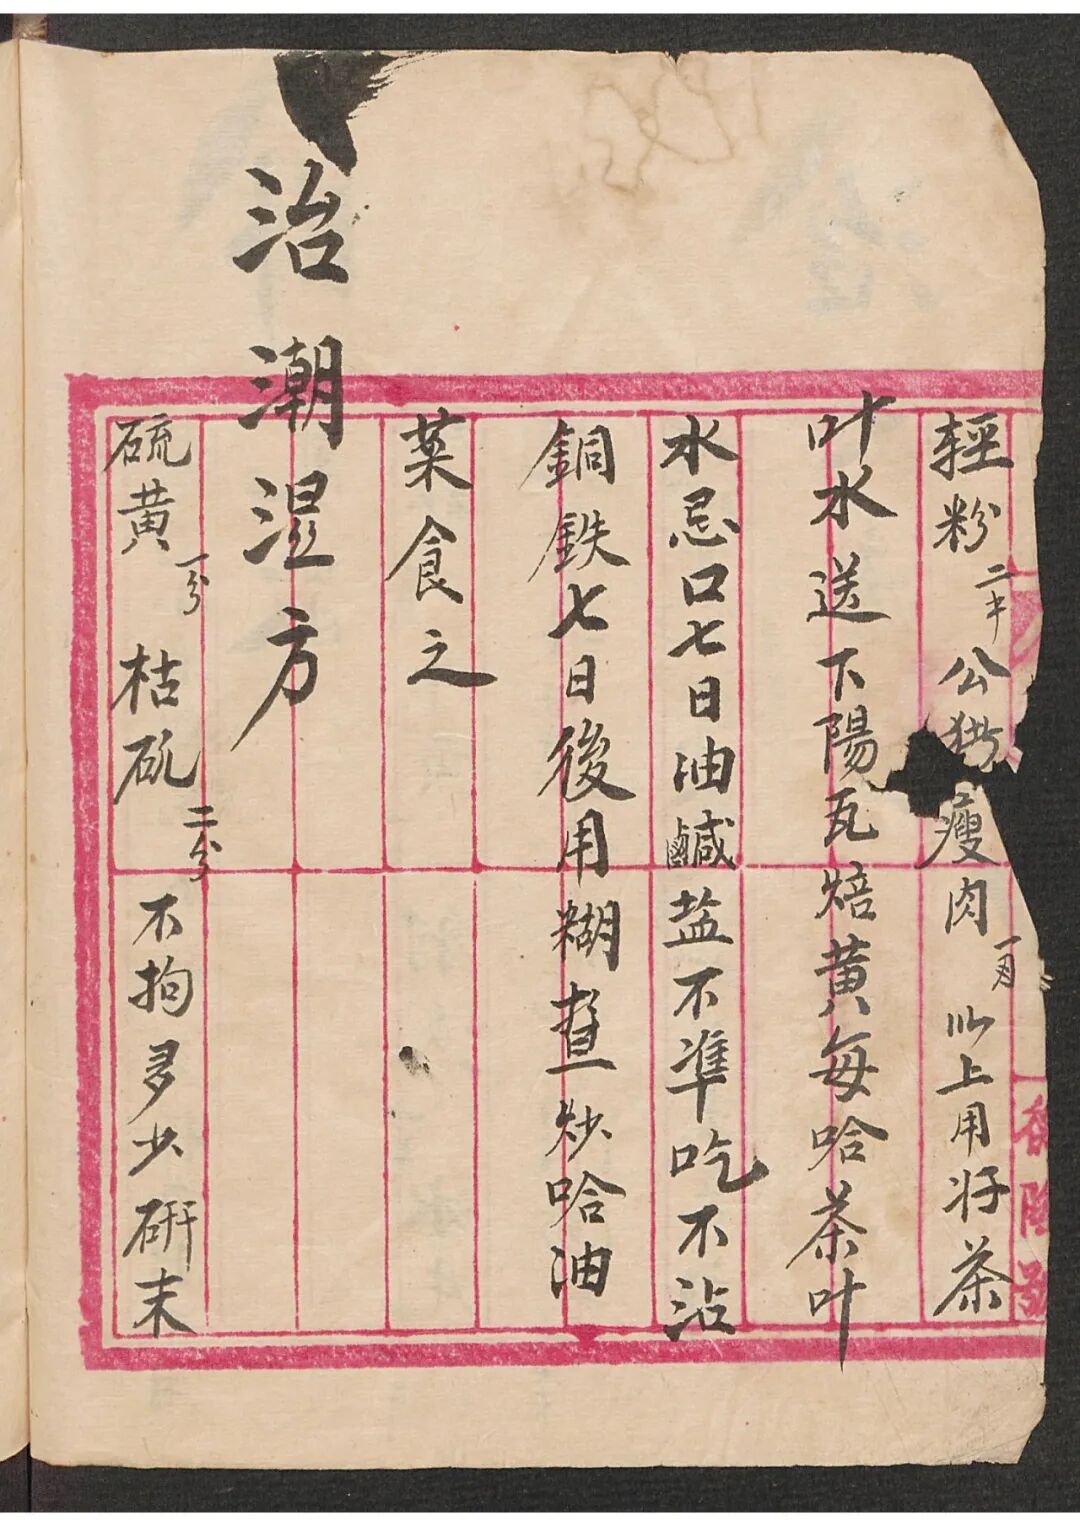 輕粉二子公猪瘦肉一月以上用好茶
叶水送下陽瓦焙黄每哈茶叶
水忌口七日油鹹盐不准吃不沾
銅鉄七日後用糊查炒哈油
菜食之
治潮湿方
硫黄一分 枯矾二分 不拘多少研末